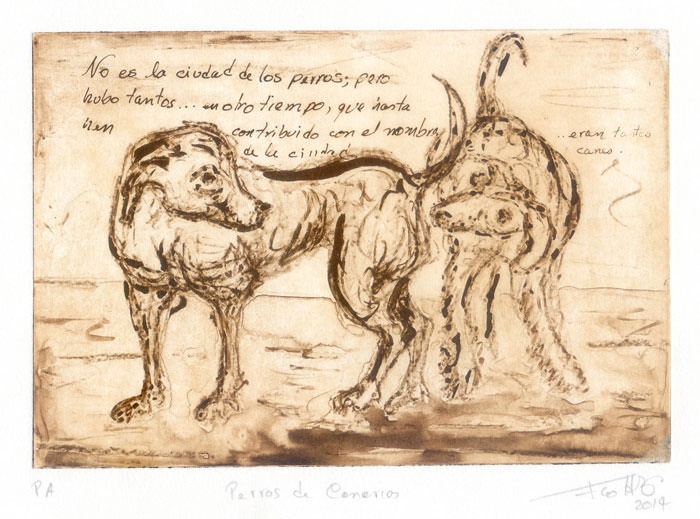 No es la ciudad de los perros; pero
hubo tantos... en otro tiempo, que hasta
han contribuido con el nombre
de la ciudad
...eran tantos
canes.
PA
Perros de Canarias
2014